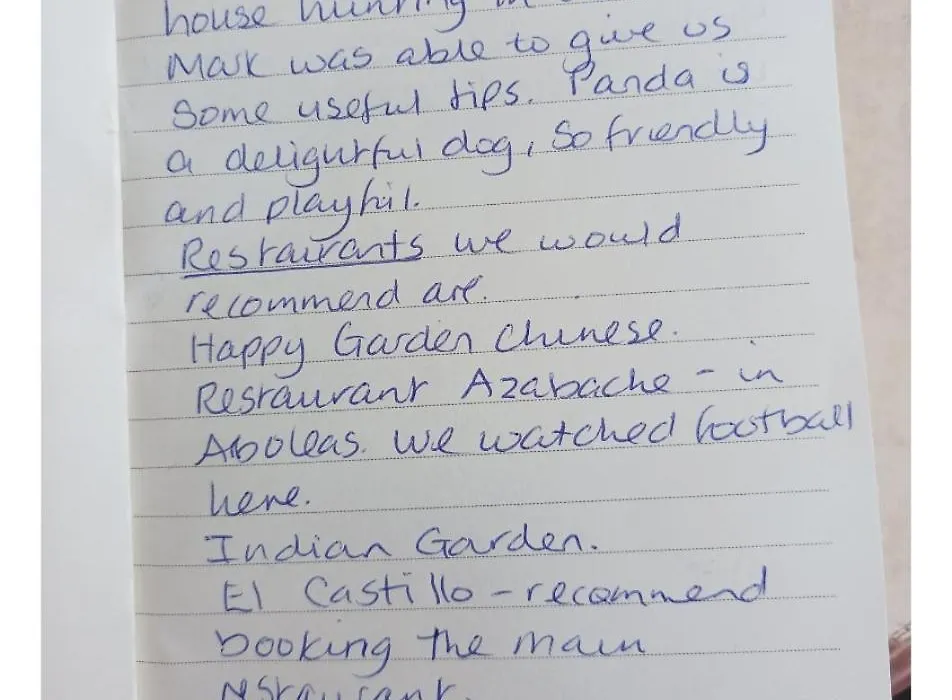 house hunting in
Mark was able to give us
some useful tips. Panda is
a delightful dog, so friendly
and playful.
Restaurants we would
recommend are.
Happy Garden Chinese.
Restaurant Azabache - in
Arboleas. We watched football
here.
Indian Garden.
El Castillo - recommend
booking the main
restaurant.